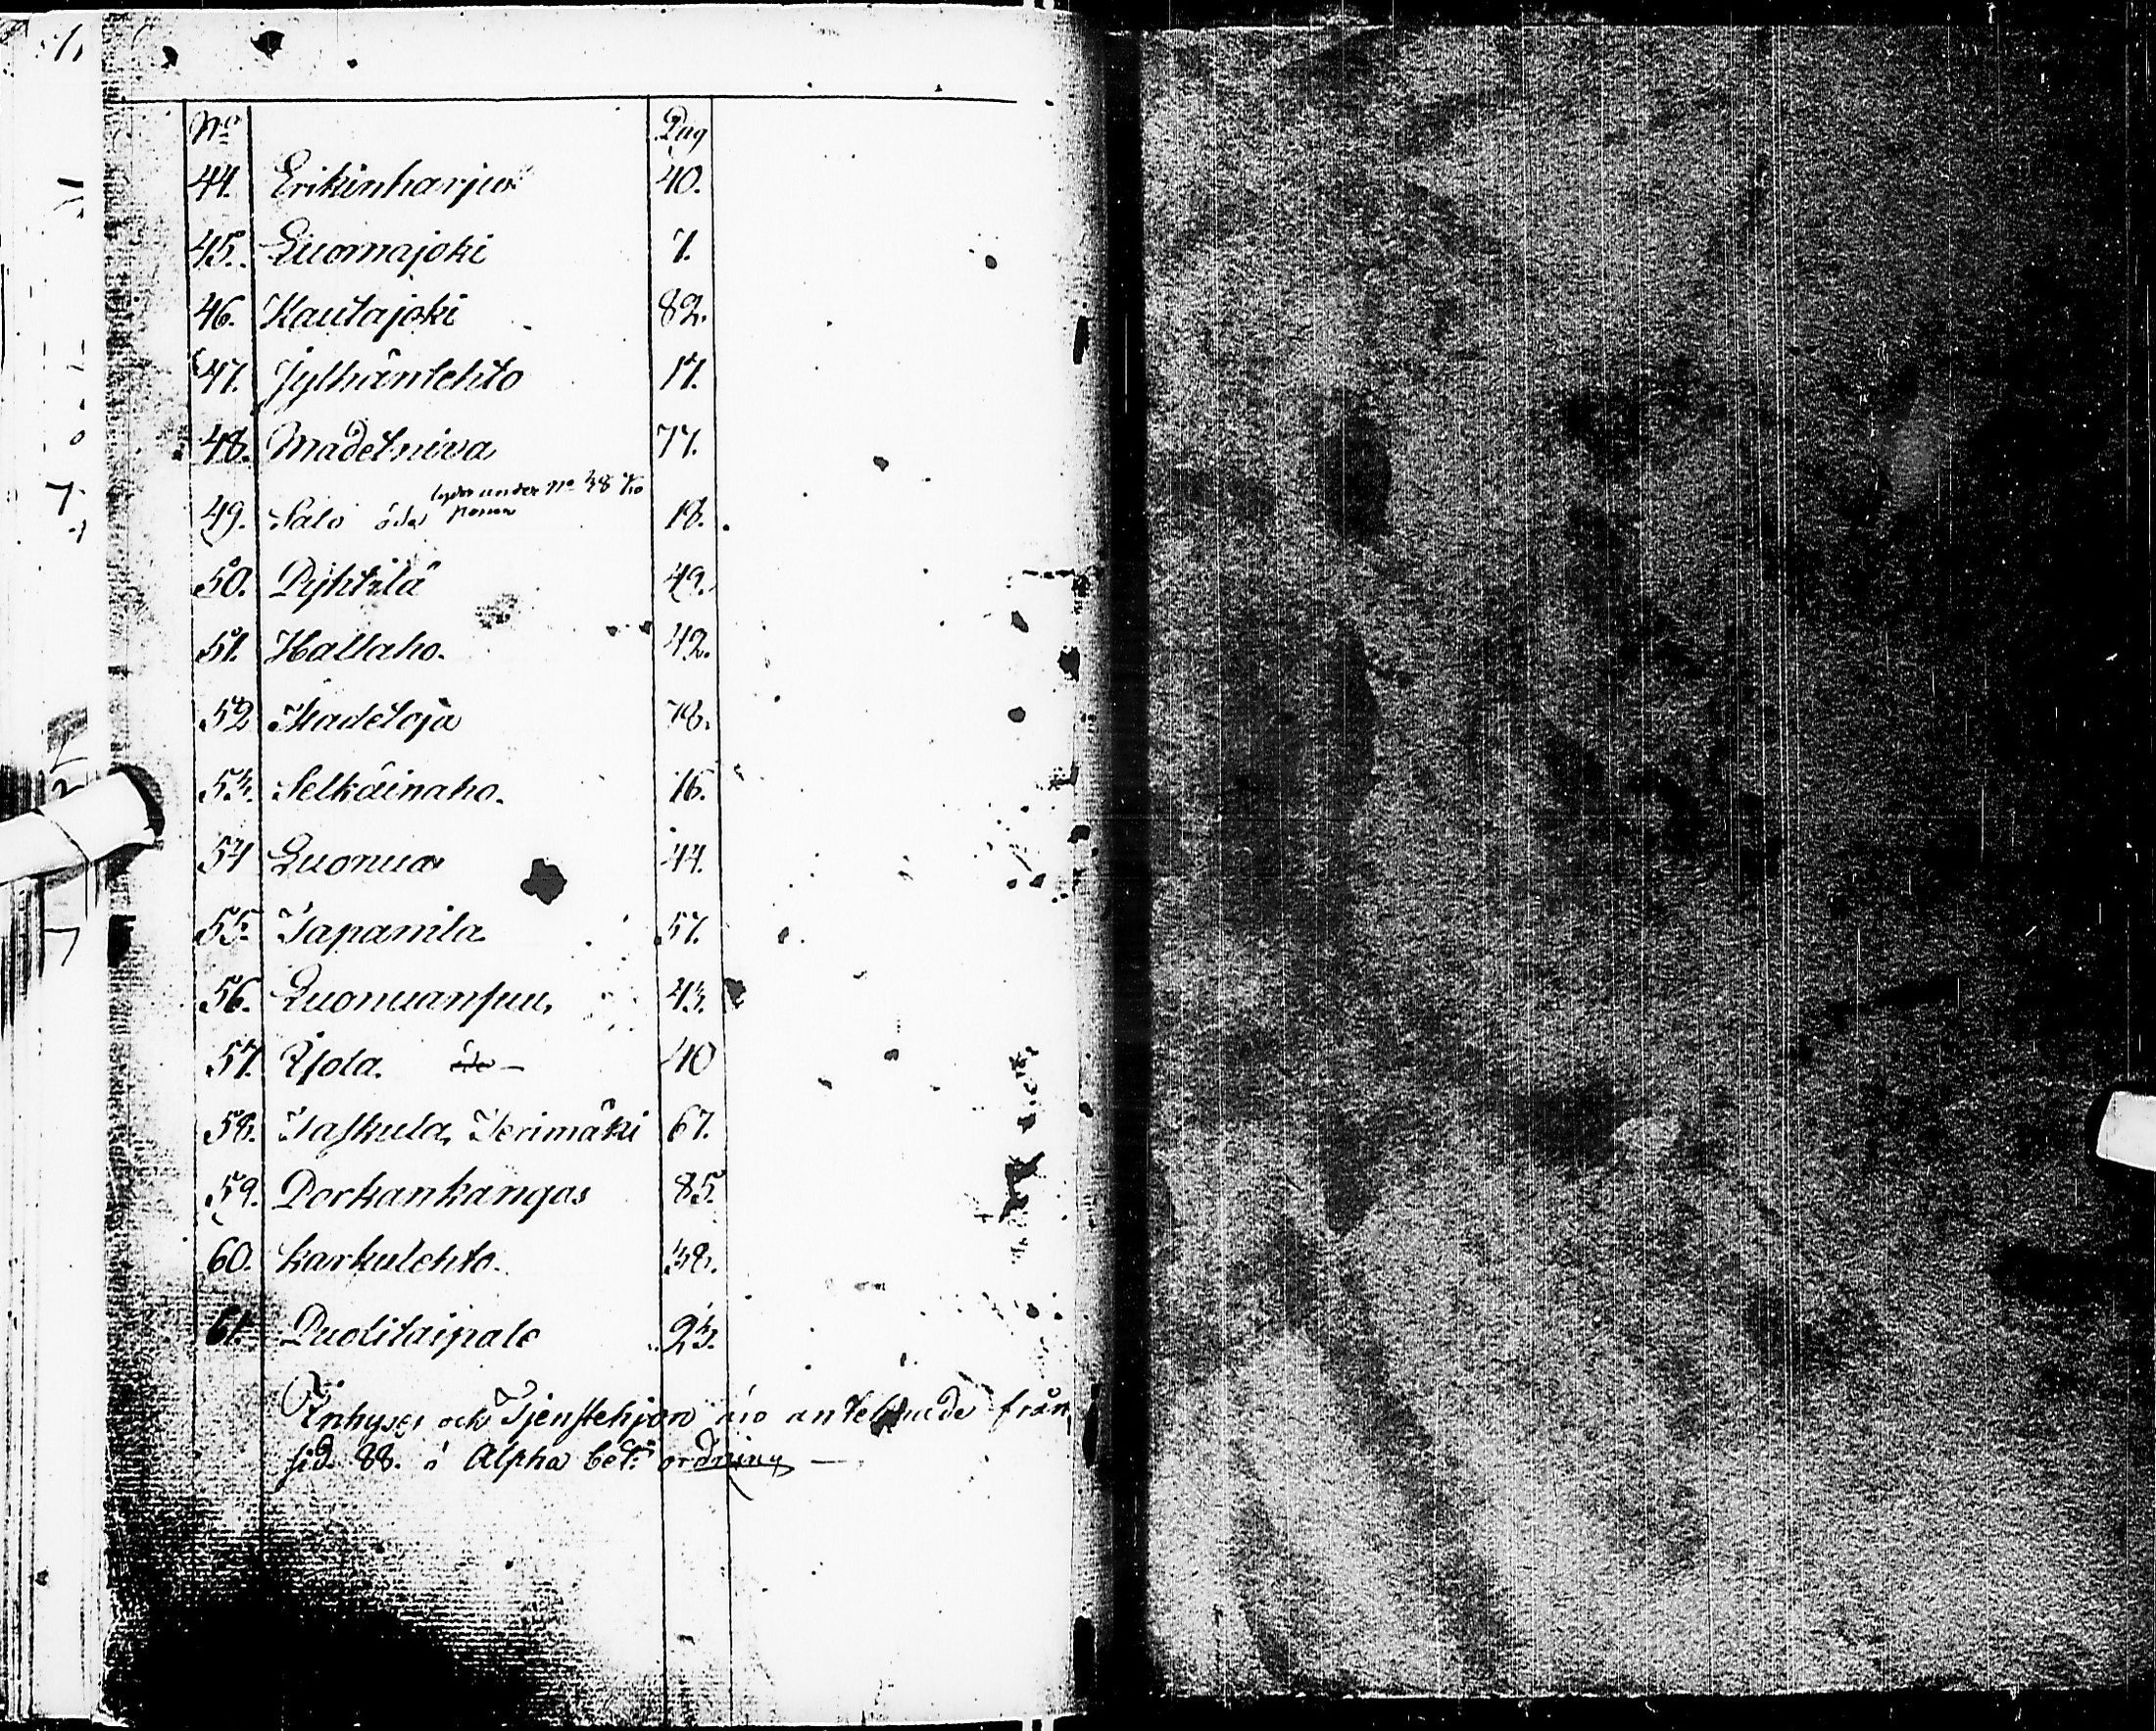 No Pag
44. Erikinharju 40.
45. Luomajoki 7.
46. Kautajoki 82.
47. Jylhänlehto 17.
48. Madetniva 77.
lyder under No 48 Ko
49. Salo öde 18.
50. Pyhtilä 49.
51. Hallaho. 42.
52 Madetoja 78.
53. Selkäinaho. 16.
54 Luonua 44.
55. Tapanila 57.
56. Luonuansuu, 43.
57. Ylola. öde — 40
58. Taskula, Terimäki 67.
59. Porkankangas 85.
60. Karkulehto. 38.
61. Puolitaipale 23.
Inhyses och Tjenstehjon äro antecknade från
sid. 88. i Alpha bet: ordning —